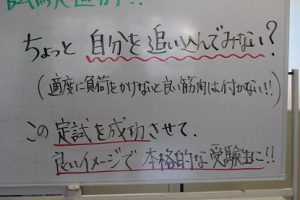 ちょっと 自分を追い込んでみない?
(適度に負荷をかけないと良い筋肉は付かない!!)
この定試を成功させて.
良いイメージで本格的な受験生に!!